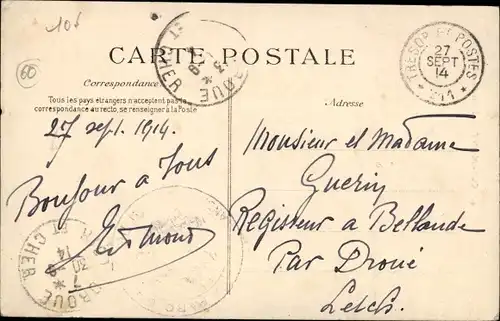 10f
60
CARTE POSTALE
Correspondance
Tous les pays étrangers n'acceptent pas la
correspondance au recto, se renseigner à la Poste
Adresse
TRESOR ET POSTES
27
SEPT
14
DROUÉ
ET CHER
27 sept. 1914.
Bonjour a Tous
Edmond
Monsieur et Madame
Guerin
Regisseur a Bellande
Par Droué
DROUÉ
ET CHER
7 30
14